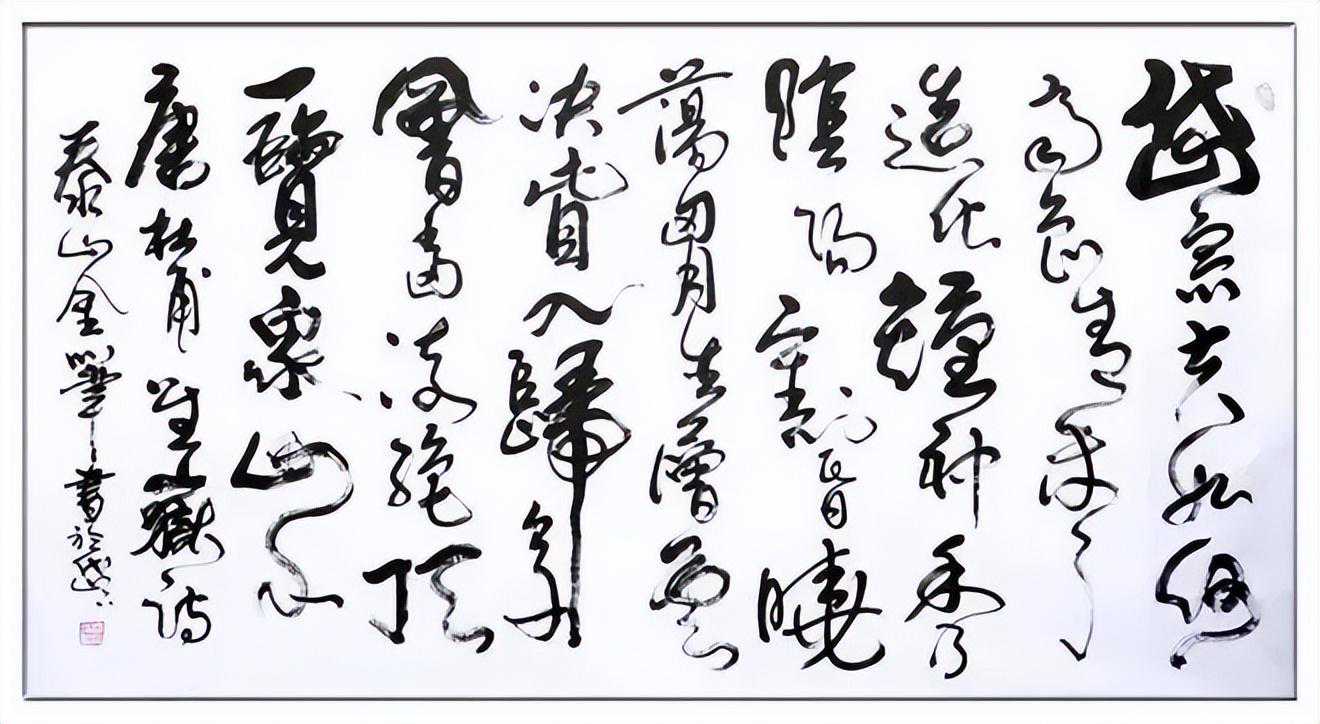 岱宗夫如何
齊魯青未了
造化鐘神秀
陰陽割昏曉
蕩胷生層雲
決眥入歸鳥
會當凌絕頂
一覽眾山小
唐杜甫望嶽詩
泰山金書於岱